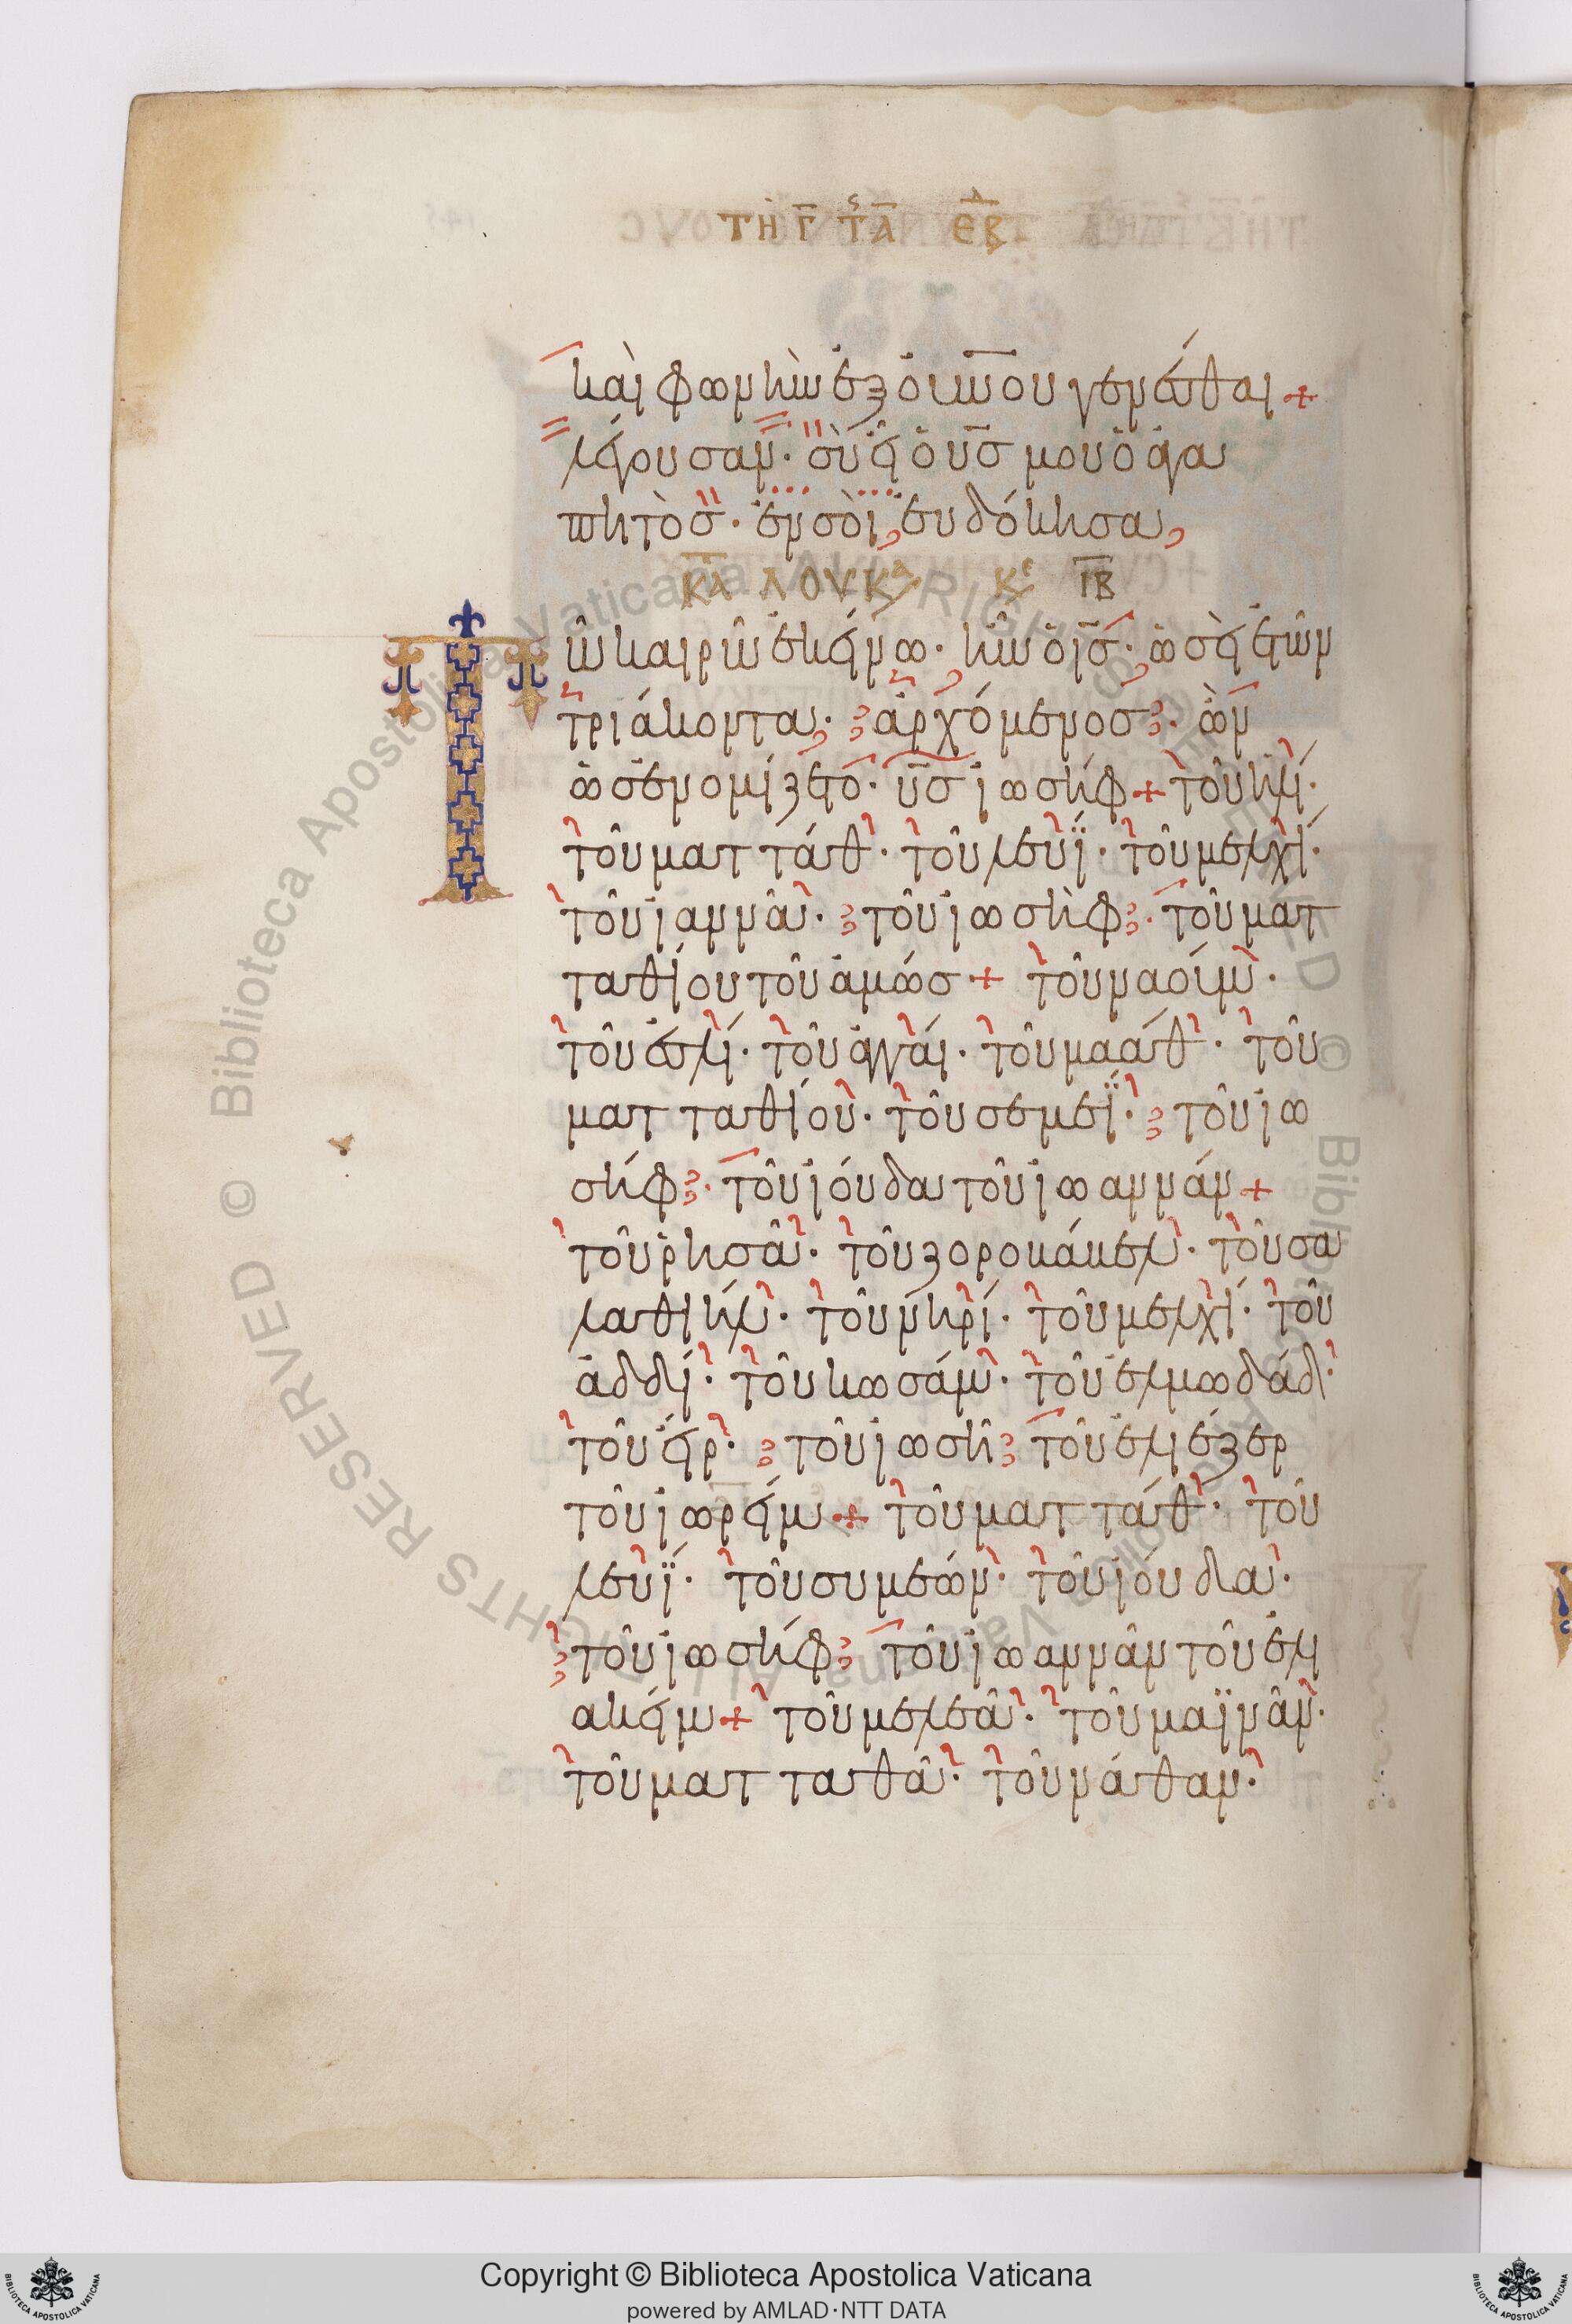 ΤΗ Γ ΤΑ ΕΒΔ
καὶ φωνὴν ἐξ οὐνοῦ γενέσθαι +
λέγουσαν· σὺ εἶ ὁ υσ μου ὁ ἀγα
πητὸσ· ἐν σοὶ εὐδόκησα,
ΚΑ ΛΟΥΚΑ ΚΕ ΙΒ
Τῶ καιρῶ ἐκείνω· ἦν ὁ ισ· ὡσεὶ ἐτῶν
τριάκοντα· ἀρχόμενοσ· ὢν
ὡσ ἐνομίζετο· υσ ἰωσήφ + τοῦ ἡλί·
τοῦ ματτάθ· τοῦ λευΐ· τοῦ μελχί·
τοῦ ἰαννᾶ· τοῦ ἰωσὴφ· τοῦ ματ
ταθίου τοῦ ἀμώσ + τοῦ ναοίμ·
τοῦ ἐσλί· τοῦ ἀγγαί· τοῦ μαάθ· τοῦ
ματταθίου· τοῦ σεμεΐ· τοῦ ἰω
σήφ· τοῦ ἰούδα τοῦ ἰωαννάν +
τοῦ ῥησᾶ· τοῦ ζοροβάβελ· τοῦ σα
λαθιήλ· τοῦ νηρί· τοῦ μελχί· τοῦ
ἀδδί· τοῦ κωσάμ· τοῦ ἐλμωδάδ·
τοῦ ἔρ· τοῦ ἰωσῆ τοῦ ἐλιέζερ
τοῦ ἰωρείμ + τοῦ ματτάθ· τοῦ
λευΐ· τοῦ συμεών· τοῦ ἰούδα·
τοῦ ἰωσήφ τοῦ ἰωαννᾶν τοῦ ἐλι
ακείμ + τοῦ μελεᾶ· τοῦ μαϊνᾶν·
τοῦ ματταθᾶ· τοῦ νάθαν·
Copyright © Biblioteca Apostolica Vaticana
powered by AMLAD·NTT DATA